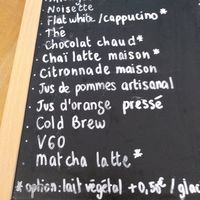 Noisette
Flat white/cappucino*
Thé
Chocolat chaud*
Chaï latte maison*
Citronnade maison
Jus de pommes artisanal
Jus d'orange pressé
Cold Brew
V60
matcha latte*
*option: lait végétal +0,50€/glac